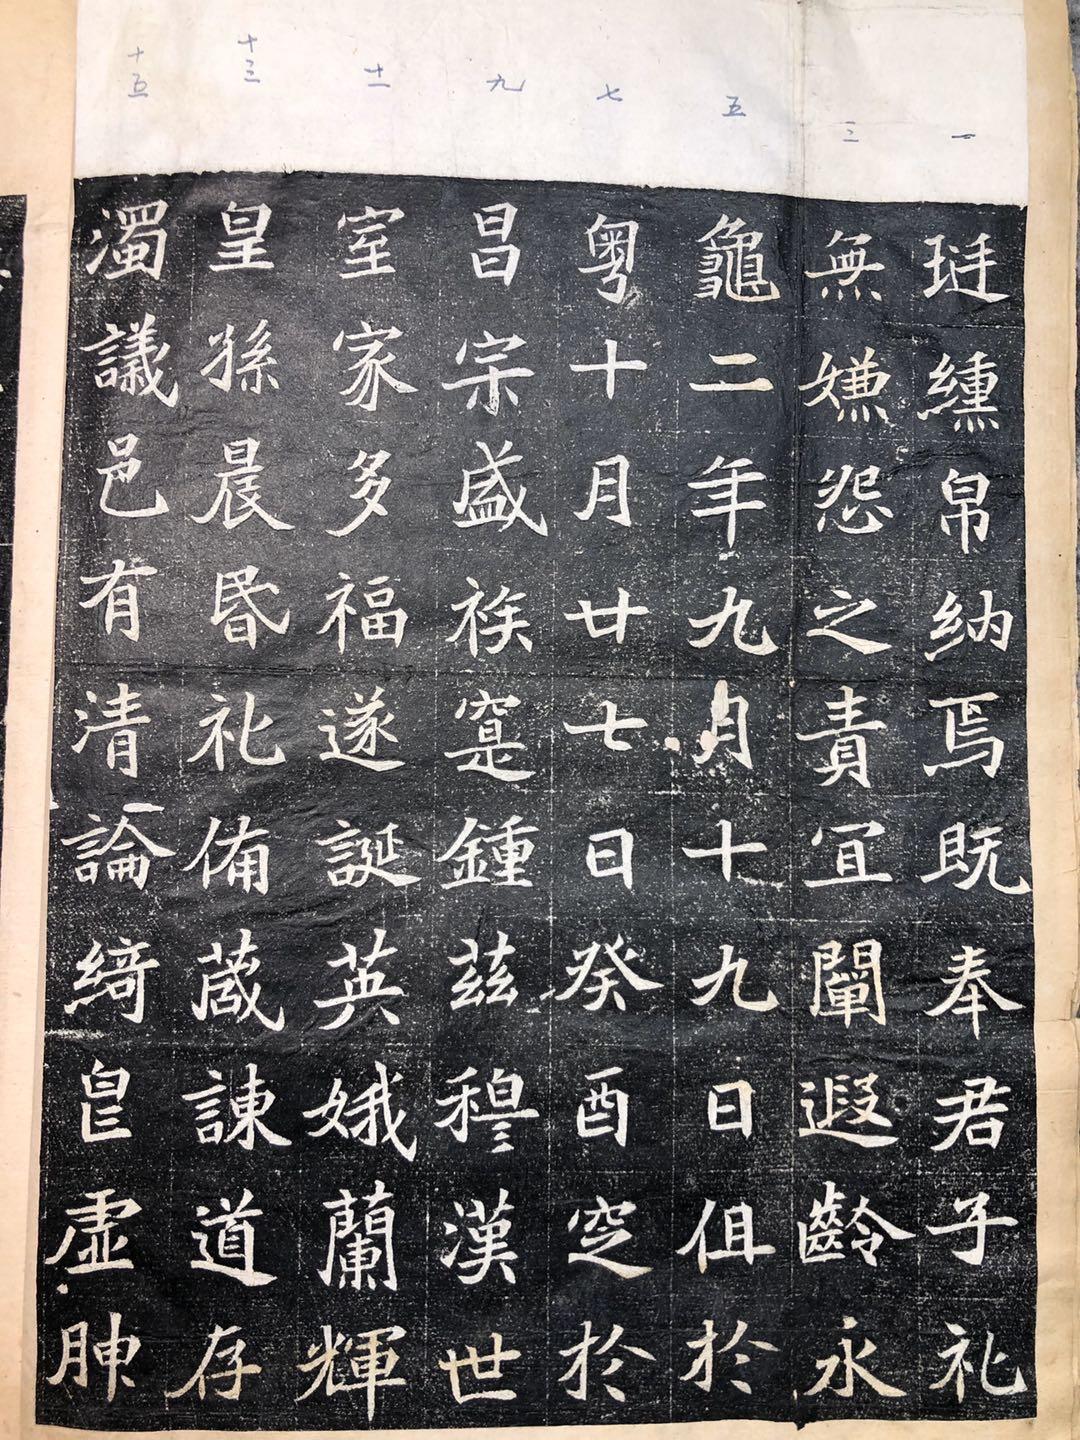 一
三
五
七
九
十一
十三
十五
珽纁帛納焉既奉君子礼
無嫌怨之責宜闡遐齡永
龜二年九月十九日伹於
粤十月廿七日癸酉窆於
昌宗盛族寔鍾茲穆漢世
室家多福遂誕英娥蘭輝
皇孫晨昬礼備葴諫道存
濁議邑有清論綺皀虛腴